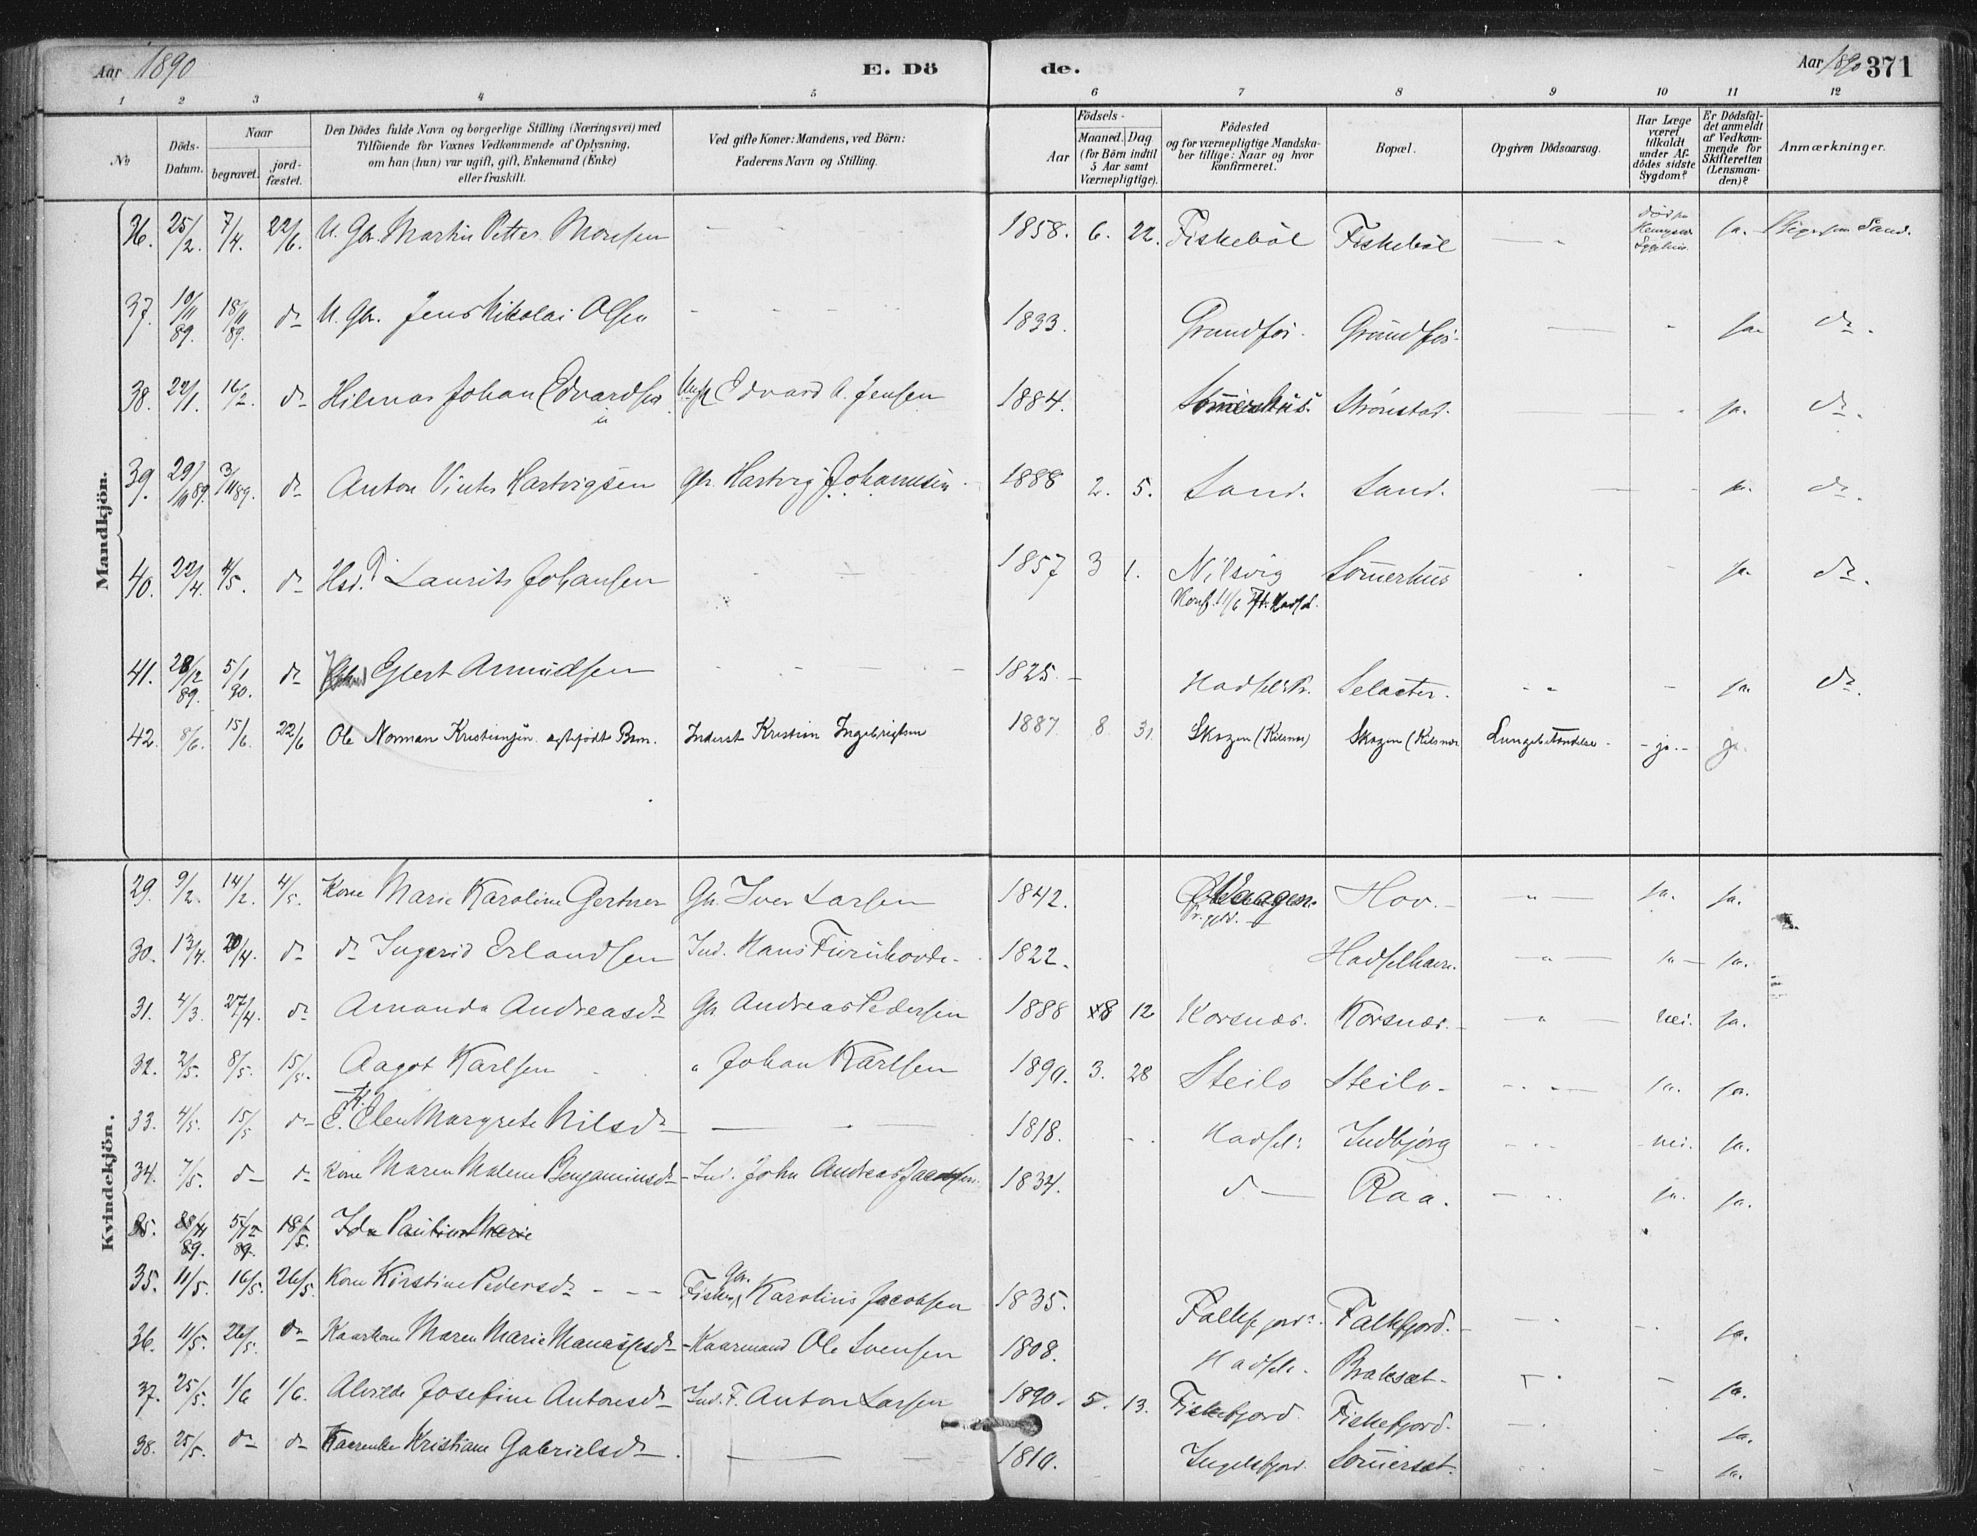 Aar 1890 E. Dö de. Aar 1890 371
1 2 3 4 5 6 7 8 9 10 11 12
No Döds-Datum. Naar begravet. jord-fæstet.
Den Dödes fulde Navn og borgerlige Stilling (Næringsvei) med
Tilföiende for Voxnes Vedkommende af Oplysning,
om han (hun) var ugift, gift, Enkemand (Enke)
eller fraskilt.
Ved gifte Koner: Mandens, ved Börn:
Faderens Navn og Stilling.
Födsels- Aar Maaned. Dag (for Börn indtil 5 Aar samt Værnepligtige).
Födested og for værnepligtige Mandskaber tillige: Naar og hvor konfirmeret.
Bopæl.
Opgiven Dödsaarsag.
Har Læge været tilkaldt under Afdödes sidste Sygdom?
Er Dödsfaldet anmeldt af Vedkommende for Skifteretten (Lensmanden)?
Anmærkninger.
Mandkjön.
36. 25/2. 7/4. 22/6. U. Gbr. Martin Petter Monsen 1858. 6. 22. Fiskeböl Fiskeböl ja. Sand.
37. 10/11 89. 15/11 89. do U. Gbr. Jens Nikolai Olsen 1833. Grundför. Grundför. ja do.
38. 22/1. 16/2. do Hilmar Johan Edvardsen Edvard A. Jensen 1884. Sommerhus. Strönstad. ja. do.
39. 29/10 89. 3/11 89. do Anton Vinter Hartvigsen Gbr. Hartvig Johannsen 1888 2. 5. Sand. Sand. ja. do.
40. 22/4. 4/5. do Laurits Johansen 1857 3 1. Nilsvig Sommerhus ja. do.
Konf. Hadsel.
41. 28/12 89. 5/1 90. do Eglert Arnudsen 1825. Hadsel Pr. Selaeter. ja do.
42. 8/6. 15/6. 22/6 Ole Norman Kristiansen ægtefödt Barn. Inderst Kristian Ingebrigtsen 1887 8 31. Skagen (Kilsnes) Skagen (Kilsnes Lungebetændelse. ja. ja.
Kvindekjön.
29. 9/2. 14/2. 4/5. Kone Marie Karoline Gertner Gbr. Iver Larsen 1842. Vaagen. Hov. ja. ja.
30. 13/4. 20/4. do do Ingerid Erlandsen Ind. Hans Furuhovde. 1822. Hadselhavn. ja ja.
31. 4/3. 27/4. do Amanda Andreasdr Gbr Andreas Pedersen 1888 8 12 Korsnæs. Korsnæs. nei. ja.
32. 2/5. 8/5. 15/5. Aagot Karlsen " Johan Karlsen 1890. 3. 28 Steilo Steilo. ja. ja.
33. 4/5. 15/5 do E. Elen Margrete Nilsdr 1818. Hadsel. Indbjörg nei. ja.
34. 7/5. do do Kone Maren Malene Benjaminsdr Ind. John Andreas Jacobsen 1834. do Raa. ja. ja.
35. 28/11 89. 5/12 89. 18/5. Ida Pauline Marie
35. 11/5. 16/5. 26/5. Kone Kirstine Pedersdr Gbr. Fisker Karolius Jacobsen 1835. Falkfjord. Falkfjord. ja.
36. 11/5. 26/5. do Kaarkone Maren Marie Manassesdr Kaarmand Ole Svensen 1808. Hadsel. Braksæt. ja.
37. 25/5. 1/6 1/6. Alvilde Josefine Antonsdr Ind. F. Anton Larsen 1890. 5. 13. Fiskefjord. Fiskefjord. ja.
38. 25/5. do do Kaarenke Kristiane Gabrielsdr 1810. Ingelsfjord. Sommersæt. ja.